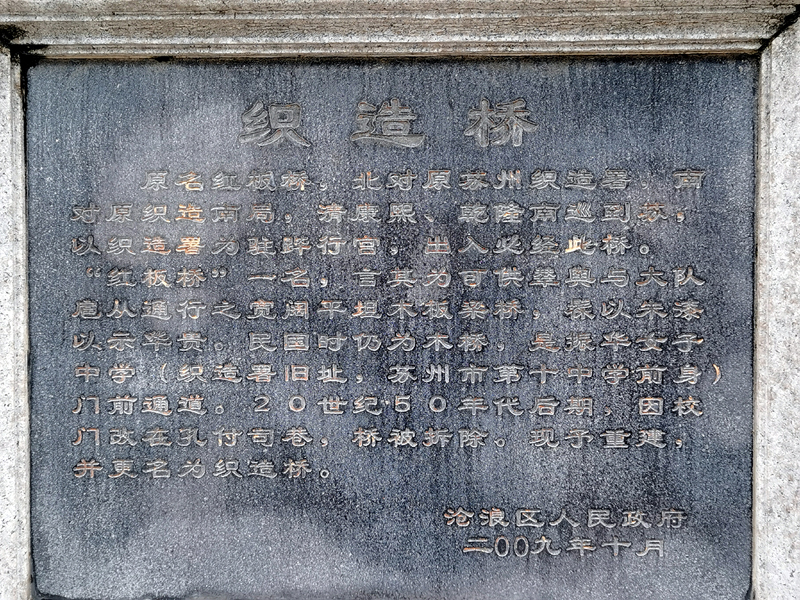 织造桥
原名红板桥，北对原苏州织造署，南
对原织造南局。清康熙、乾隆南巡到苏，
以织造署为驻跸行宫，出入必经此桥。
“红板桥”一名，言其为可供辇舆与大队
扈从通行之宽阔平坦木板梁桥，漆以朱漆
以示华贵。民国时仍为木桥，是振华女子
中学（织造署旧址，苏州市第十中学前身）
门前通道。20世纪50年代后期，因校
门改在孔付司巷，桥被拆除。现予重建，
并更名为织造桥。
沧浪区人民政府
二00九年十月